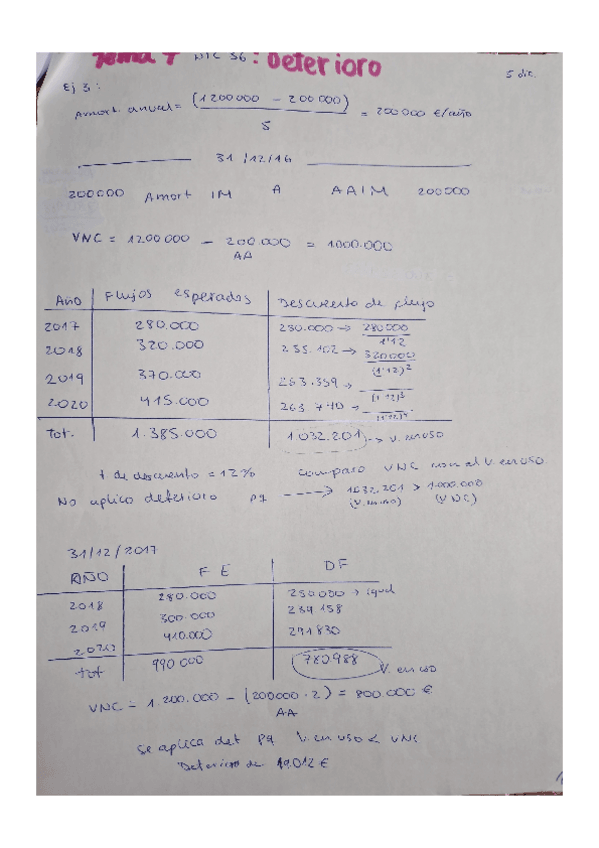 Tema 7 NIC 36: Deterioro
5 dic.
Ej 3:
Amort. anual = (1200000 - 200000) / 5 = 200000 €/año
31/12/16
200000 Amort IM A AAIM 200000
VNC = 1200.000 - 200.000 = 1000.000
AA
Año Flujos esperados Descuento de flujo
2017 280.000 250.000 → 280000 / 1'12
2018 320.000 255.102 → 320000 / (1'12)²
2019 370.000 263.359 → / (1'12)³
2020 415.000 263.740 → / (1'12)⁴
Tot. 1.385.000 1032.201 → V. en uso
t de descuento = 12% comparo VNC con el V. en uso
No aplico deterioro pq ----> 1032.201 > 1.000.000
(V. en uso) (VNC)
31/12/2017
AÑO F E DF
2018 280.000 250000 → igual
2019 300.000 239158
2020 410.000 291830
tot 990 000 780988 V. en uso
VNC = 1.200.000 - (200000·2) = 800.000 €
AA
Se aplica det pq V. en uso < VNC
Deterioro de 19.012 €